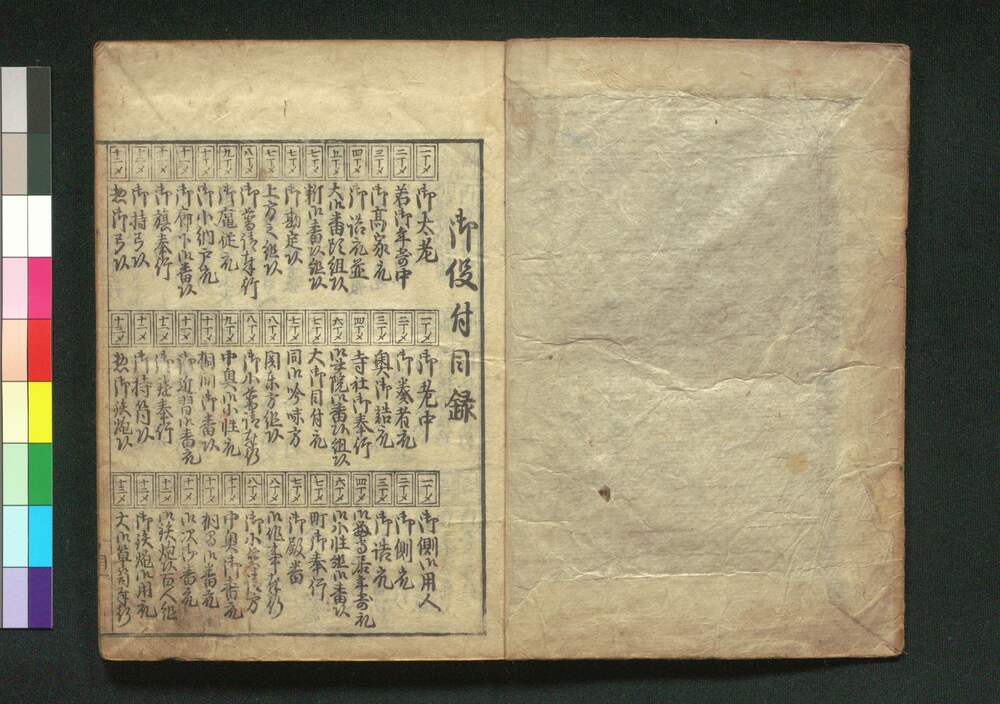 御役付目録
一丁メ 御太老
二丁メ 若御年寄中
三丁メ 御高家衆
四丁メ 御詰衆並
五丁メ 大御番頭組頭
七丁メ 新御番頭組頭
七丁メ 御勘定頭
七丁メ 上方之組頭
八丁メ 御普請奉行
九丁メ 御扈従衆
十丁メ 御小納戸衆
御廊下御番頭
御旗奉行
御持弓頭
惣御弓頭
一丁メ 御老中
二丁メ 御奏者衆
三丁メ 奥御詰衆
四丁メ 寺社御奉行
六丁メ 御書院御番頭組頭
七丁メ 大御目付衆
七丁メ 同御吟味方
八丁メ 関东方組頭
八丁メ 御小普請奉行
九丁メ 中奥御小性衆
十丁メ 桐間御番頭
御近習御番衆
御鑓奉行
御持筒頭
惣御鉄炮頭
一丁メ 御側御用人
二丁メ 御側衆
三丁メ 御詰衆
四丁メ 御留守居年寄衆
六丁メ 御小性組御番頭
七丁メ 町御奉行
七丁メ 御殿番
八丁メ 御作事奉行
八丁メ 御小普請方
十丁メ 中奥御番衆
十丁メ 桐間御番衆
御次御番衆
御鉄炮頭百人組
御鉄炮御用衆
大御箪笥奉行